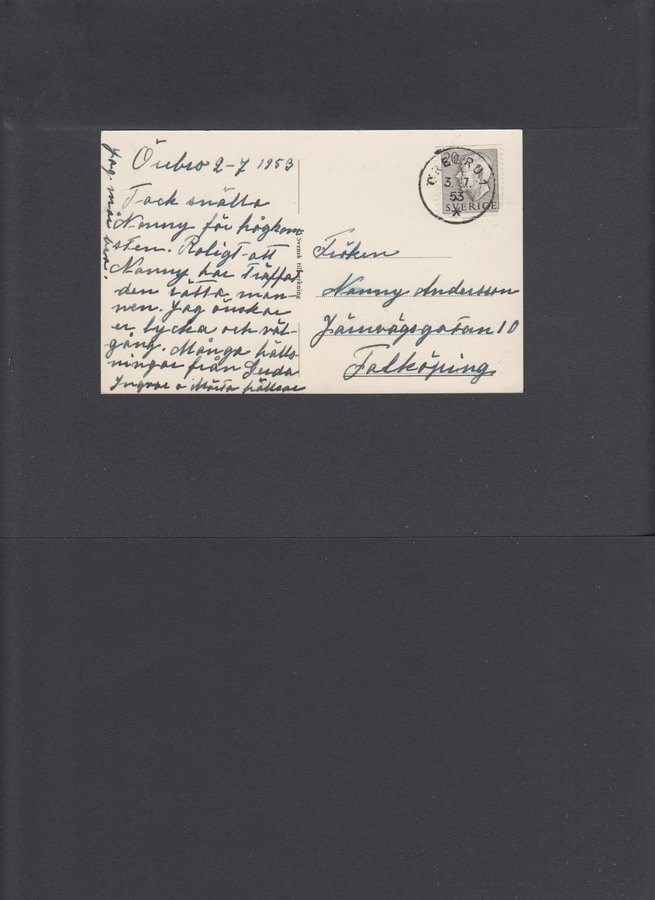 Örebro 2-7 1953
Tack snälla
Nanny för högkom
sten. Roligt att
Nanny har träffat
den rätta man-
nen. Jag önskar
er lycka och väl-
gång. Många hälls
ningar från Gerda
Ingvar o Märta hällsar
Jag mår bra.
Svensk tillverkning
20
3. 7.
53
SVERIGE
Fröken
Nanny Andersson
Järnvägsgatan 10
Falköping